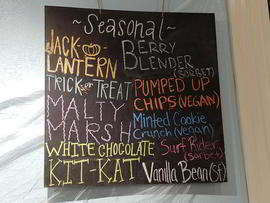 ~Seasonal~
JACK-O-
LANTERN
TRICK or TREAT
MALTY
MARSH
WHITE CHOCOLATE
KIT-KAT
BERRY
BLENDER
(SORBET)
PUMPED UP
CHIPS (VEGAN)
Minted Cookie
Crunch (vegan)
Surf Rider
(sorbet)
Vanilla Bean (SF)